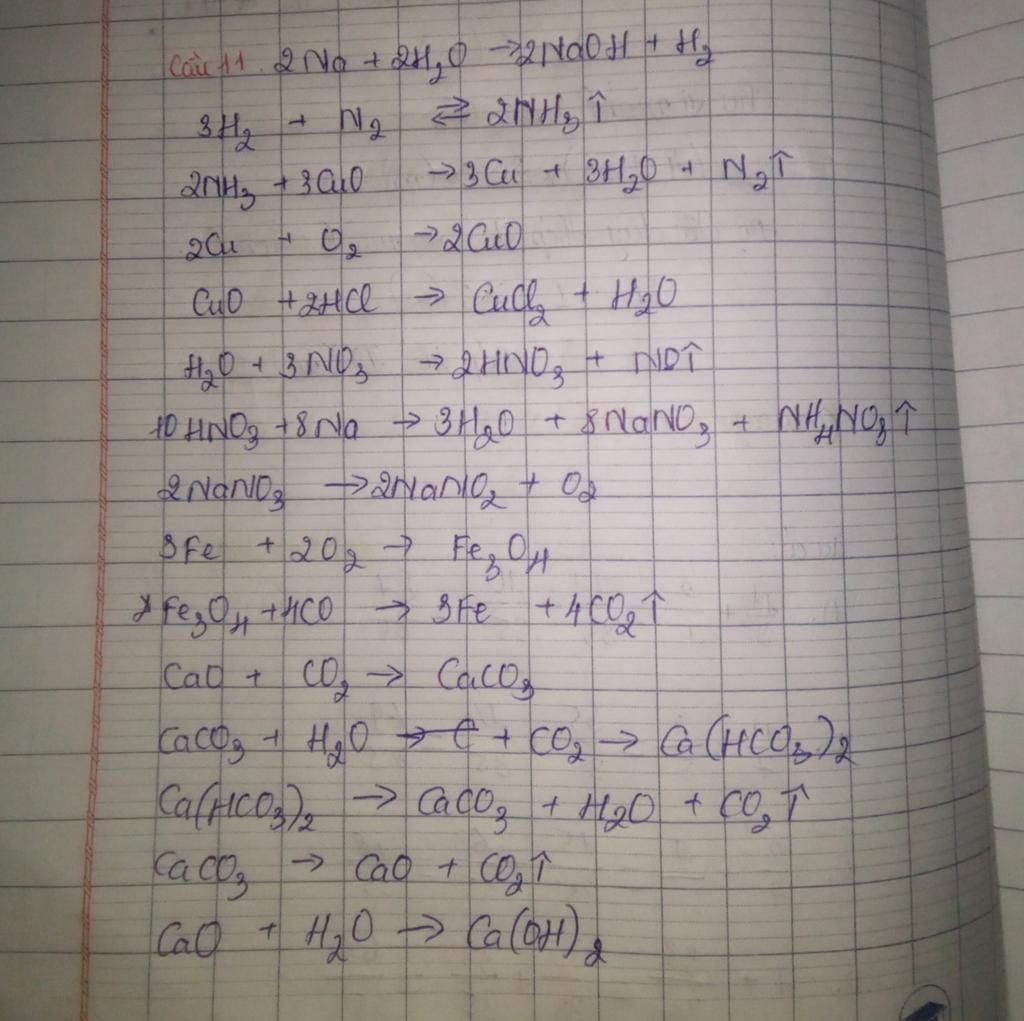 Câu 11. 2Na + 2H₂O → 2NaOH + H₂
3H₂ + N₂ ⇄ 2NH₃↑
2NH₃ + 3CuO → 3Cu + 3H₂O + N₂↑
2Cu + O₂ → 2CuO
CuO + 2HCl → CuCl₂ + H₂O
H₂O + 3NO₃ → 2HNO₃ + NO↑
10HNO₃ + 8Na → 3H₂O + 8NaNO₃ + NH₄NO₃↑
2NaNO₃ → 2NaNO₂ + O₂
3Fe + 2O₂ → Fe₃O₄
Fe₃O₄ + 4CO → 3Fe + 4CO₂↑
CaO + CO₂ → CaCO₃
CaCO₃ + H₂O + CO₂ → Ca(HCO₃)₂
Ca(HCO₃)₂ → CaCO₃ + H₂O + CO₂↑
CaCO₃ → CaO + CO₂↑
CaO + H₂O → Ca(OH)₂